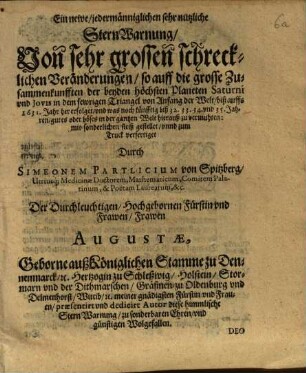 6a
Ein newe/jedermänniglichen sehr nützliche
Stern Warnung/
Von sehr grossen schreck-
lichen Veränderungen/so auff die grosse Zu-
sammenkunfften der beyden höchsten Planeten Saturni
und Jovis in dem fewrigen Triangel von Anfang der Welt/biß auffs
1651. Jahr her erfolget/und was noch künfftig biß
Jahren/gutes oder böses in der gantzen Welt hierauß zu vermuthen:
mit sonderlichem fleiß gestellet/vnnd zum
Truck verfertiget
Durch
SIMEONEM PARTLICIUM von Spitzberg/
Utriusq; Medicinæ Doctorem, Mathematicum, Comitem Pala-
tinum, & Poëtam Laureatum, &c.
Der Durchleuchtigen/Hochgebornen Fürstin vnd
Frawen/Frawen
AUGUSTÆ,
Geborne auß Königlichen Stamme zu Den-
nenmarck/&c. Hertzogin zu Schleßwig/Holstein/Stor-
marn vnd der Dithmarschen/Gräfinen zu Oldenburg vnd
Delmenhorst/ &c. meiner gnädigsten Fürstin vnd Frau-
en/præsentiret vnd dediciret Autor diese himmlische
Stern Warnung/zu sonderbaren Ehren/vnd
günstigen Wolgefallen.
DEO